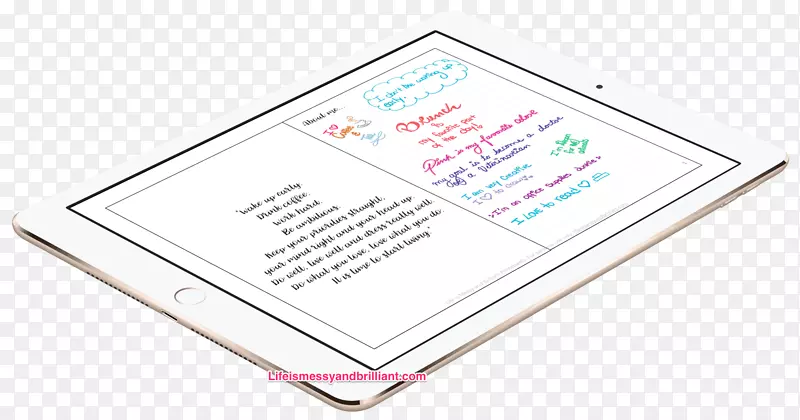 "Wake up early.
Drink coffee.
Work hard.
Be ambitious.
Keep your priorities straight,
your mind right and your head up.
Do well, live well and dress really well.
Do what you love, love what you do.
It is time to start living."
About me...
I don't like waking up
early.
I ♡
Coffee
&
Brunch
is
my favorite part
of the day!
Pink is my favourite colour
my goal is to become a doctor
of a Veterinarian
I am very creative
I ♡ to
I'm an office supplies junkie
I Love to read ♡
I'm
for
Lifeismessyandbrilliant.com